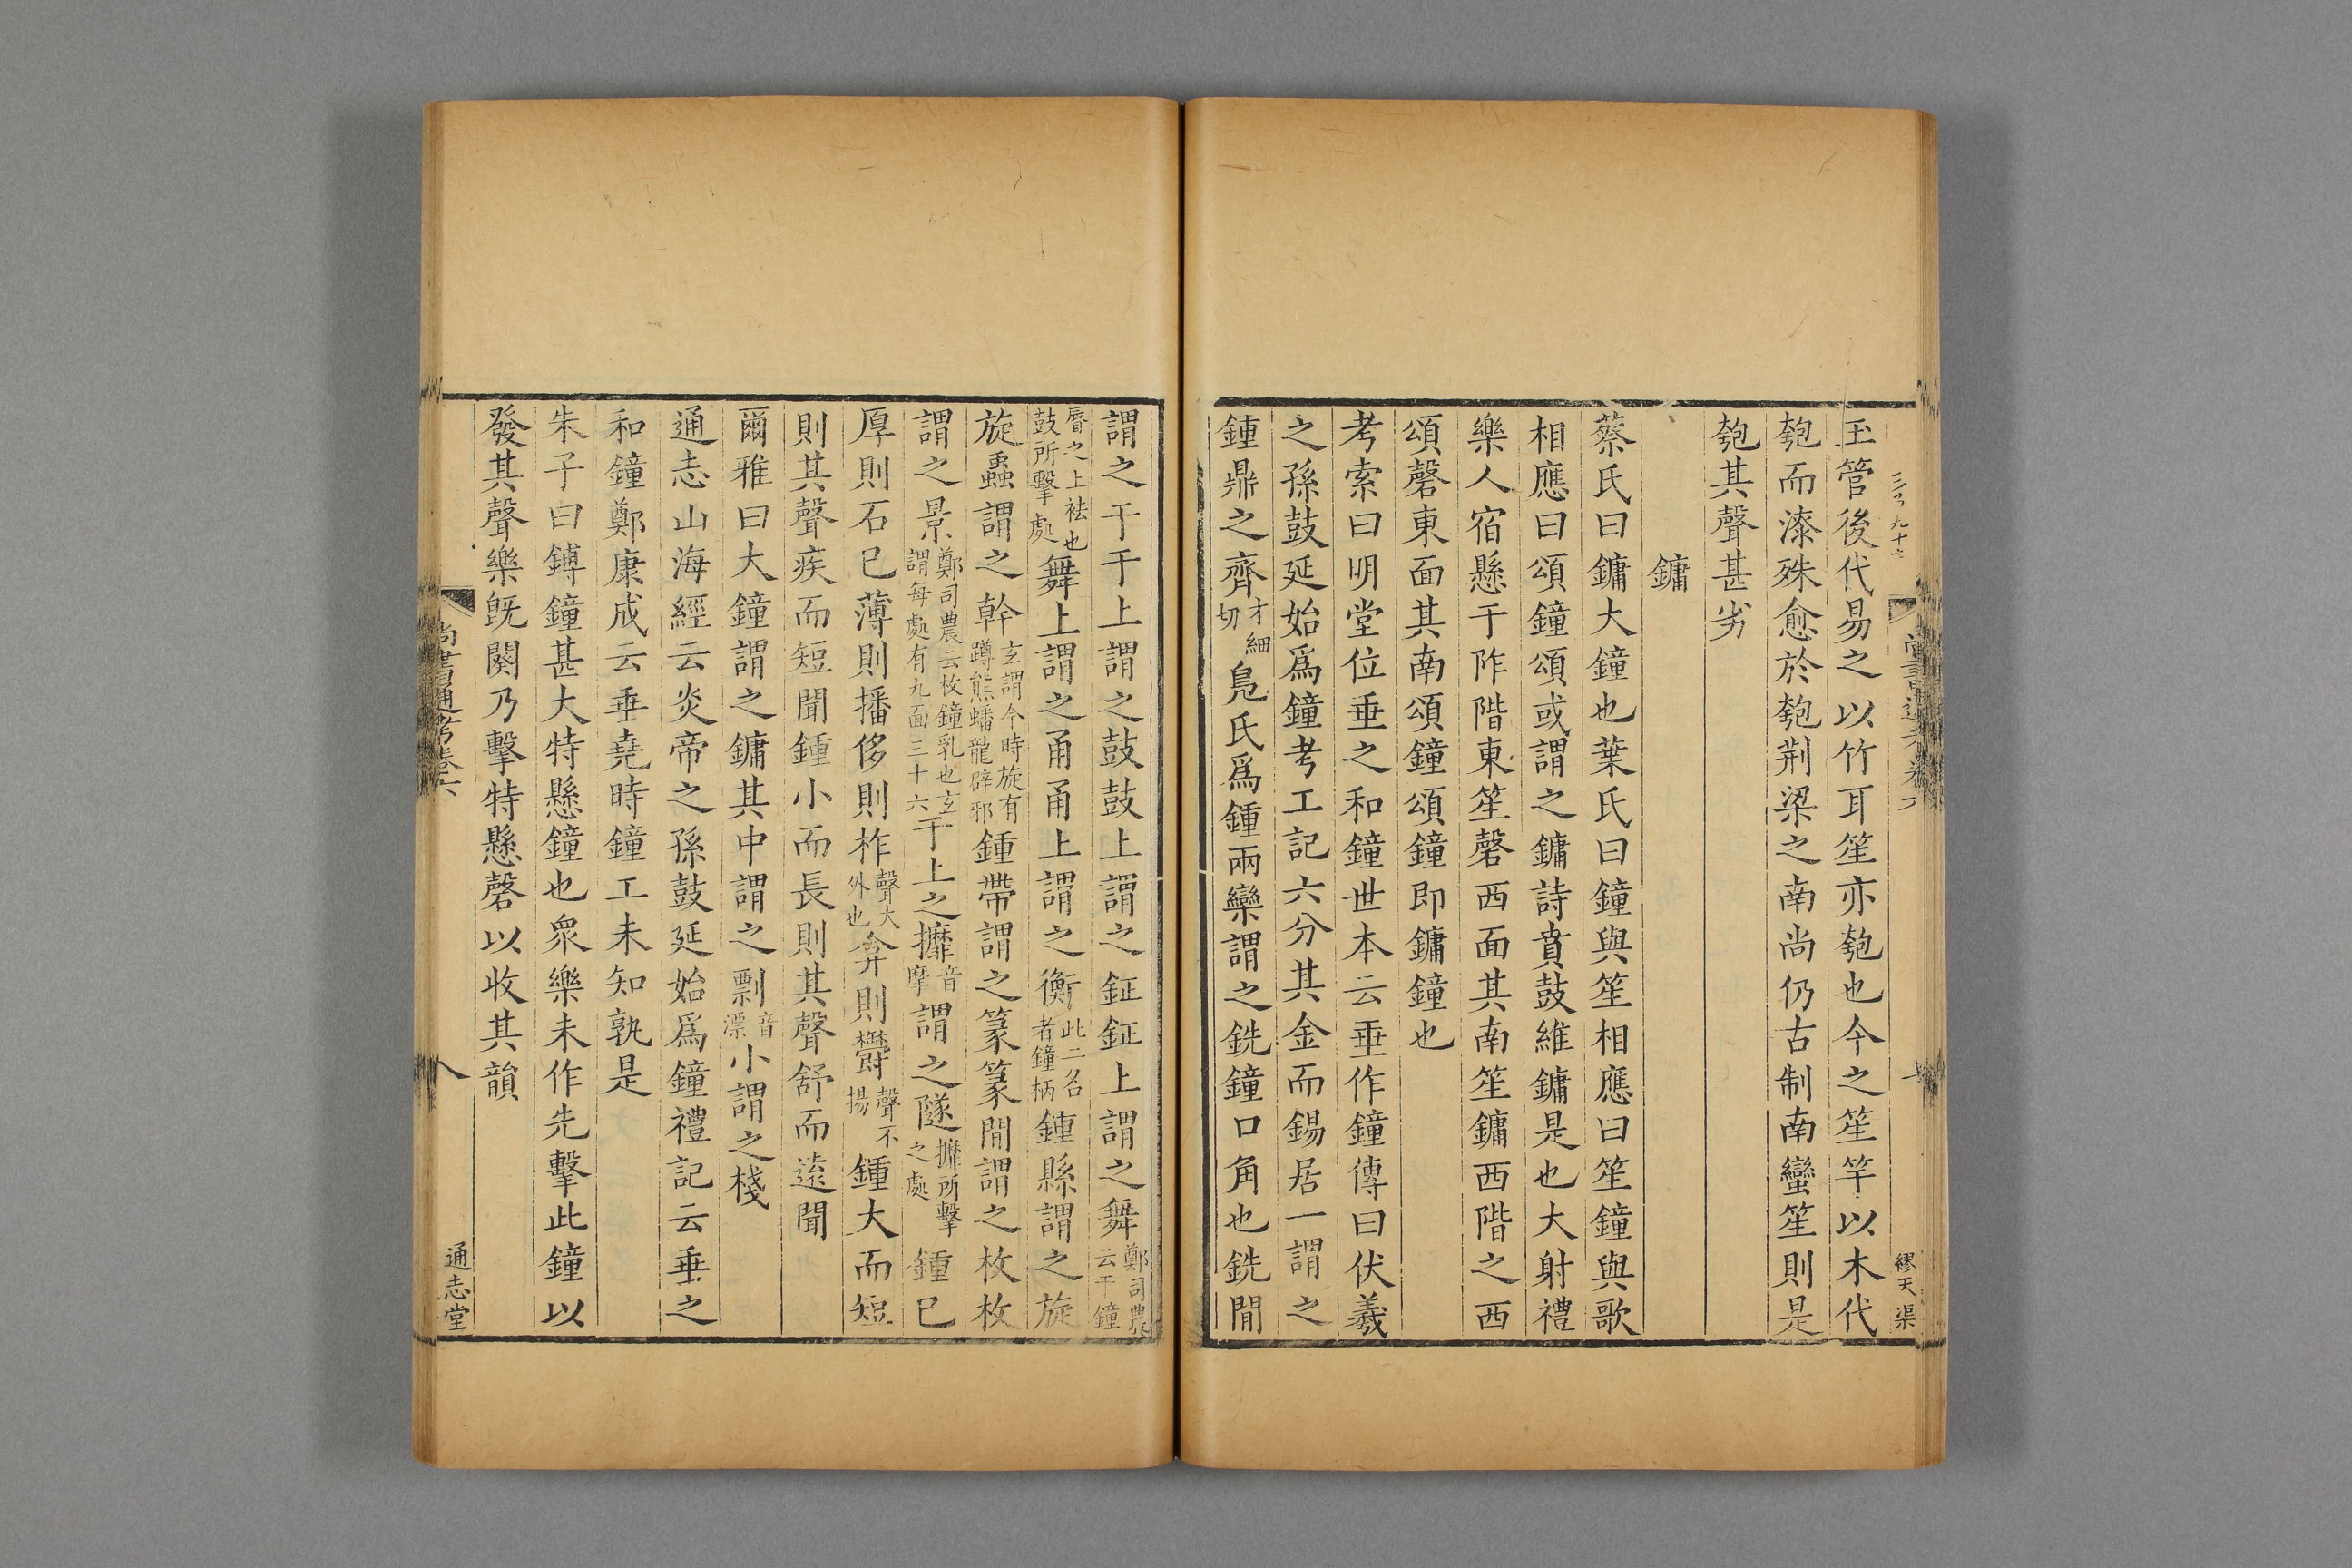 玉管後代易之以竹耳笙亦匏也今之笙竽以木代
匏而漆殊愈於匏荆梁之南尚仍古制南蠻笙則是
匏其聲甚劣
鏞
蔡氏曰鏞大鐘也葉氏曰鐘與笙相應曰笙鐘與歌
相應曰頌鐘頌或謂之鏞詩賁鼓維鏞是也大射禮
樂人宿懸于阼階東笙磬西面其南笙鏞西階之西
頌磬東面其南頌鐘頌鐘即鏞鐘也
考索曰明堂位垂之和鐘世本云垂作鐘傳曰伏羲
之孫鼓延始爲鐘考工記六分其金而錫居一謂之
鍾鼎之齊才細切鳧氏爲鍾兩欒謂之銑鐘口角也銑間
謂之于于上謂之鼓鼓上謂之鉦鉦上謂之舞鄭司農云于鐘
脣之上袪也鼓所擊處舞上謂之甬甬上謂之衡此二名者鐘柄鍾縣謂之旋
旋蟲謂之幹玄謂今時旋有蹲熊蟠龍辟邪鍾帶謂之篆篆間謂之枚枚
謂之景鄭司農云枚鐘乳也玄謂每處有九面三十六于上之攠音摩謂之隧攠所擊之處鍾已
厚則石已薄則播侈則柞聲大外也弇則鬱聲不揚鍾大而短
則其聲疾而短聞鍾小而長則其聲舒而遠聞
爾雅曰大鐘謂之鏞其中謂之剽音漂小謂之棧
通志山海經云炎帝之孫鼓延始爲鐘禮記云垂之
和鐘鄭康成云垂堯時鐘工未知孰是
朱子曰鎛鐘甚大特懸鐘也衆樂未作先擊此鐘以
發其聲樂旣闋乃擊特懸磬以收其韻
尚書通考卷六
八
通志堂
繆天渠